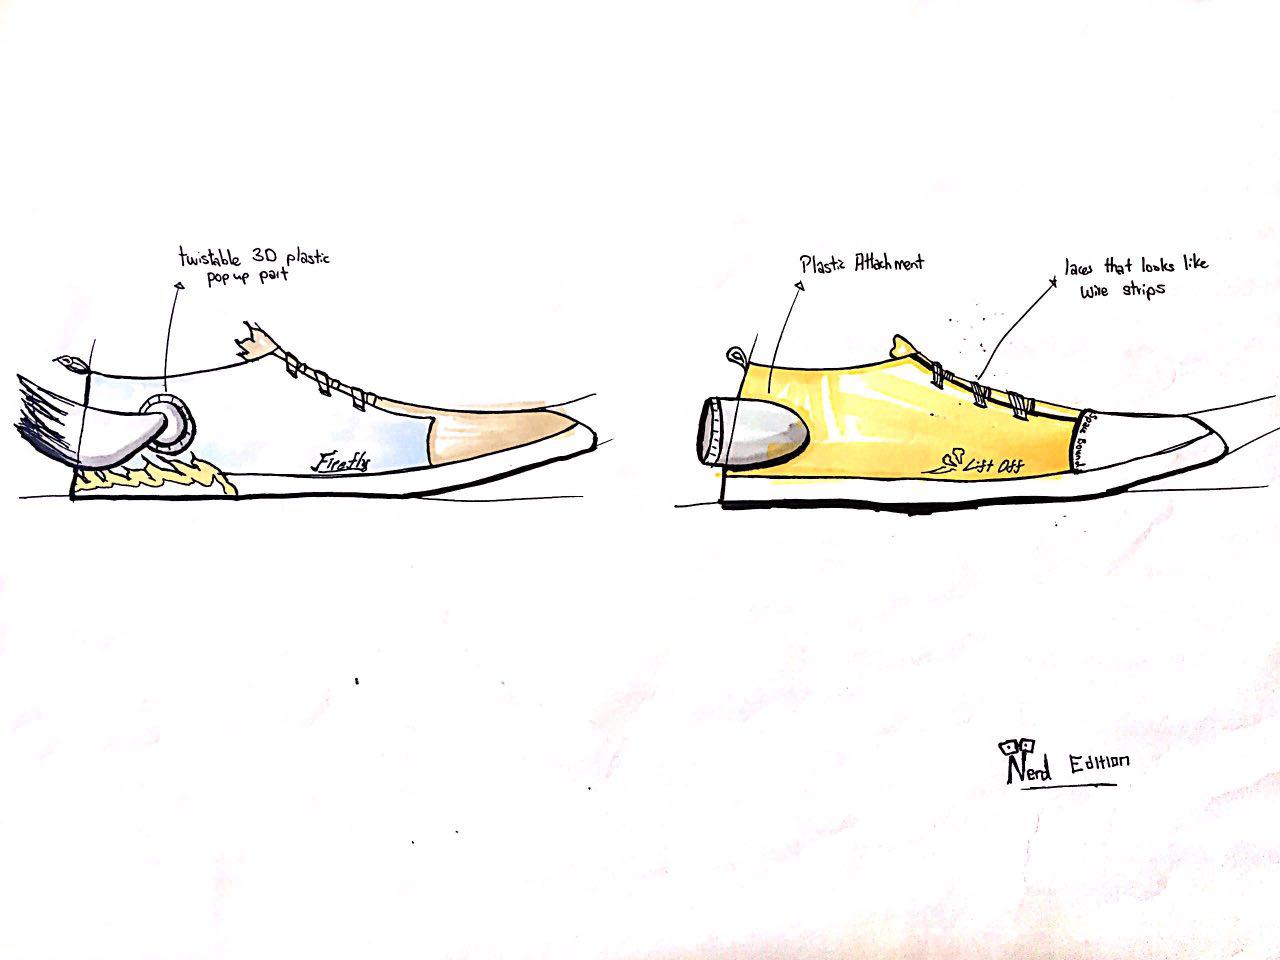 twistable 3D plastic
pop up part
Plastic Attachment
laces that looks like
wire strips
Firefly
Lift Off
Space Bound
Nerd Edition